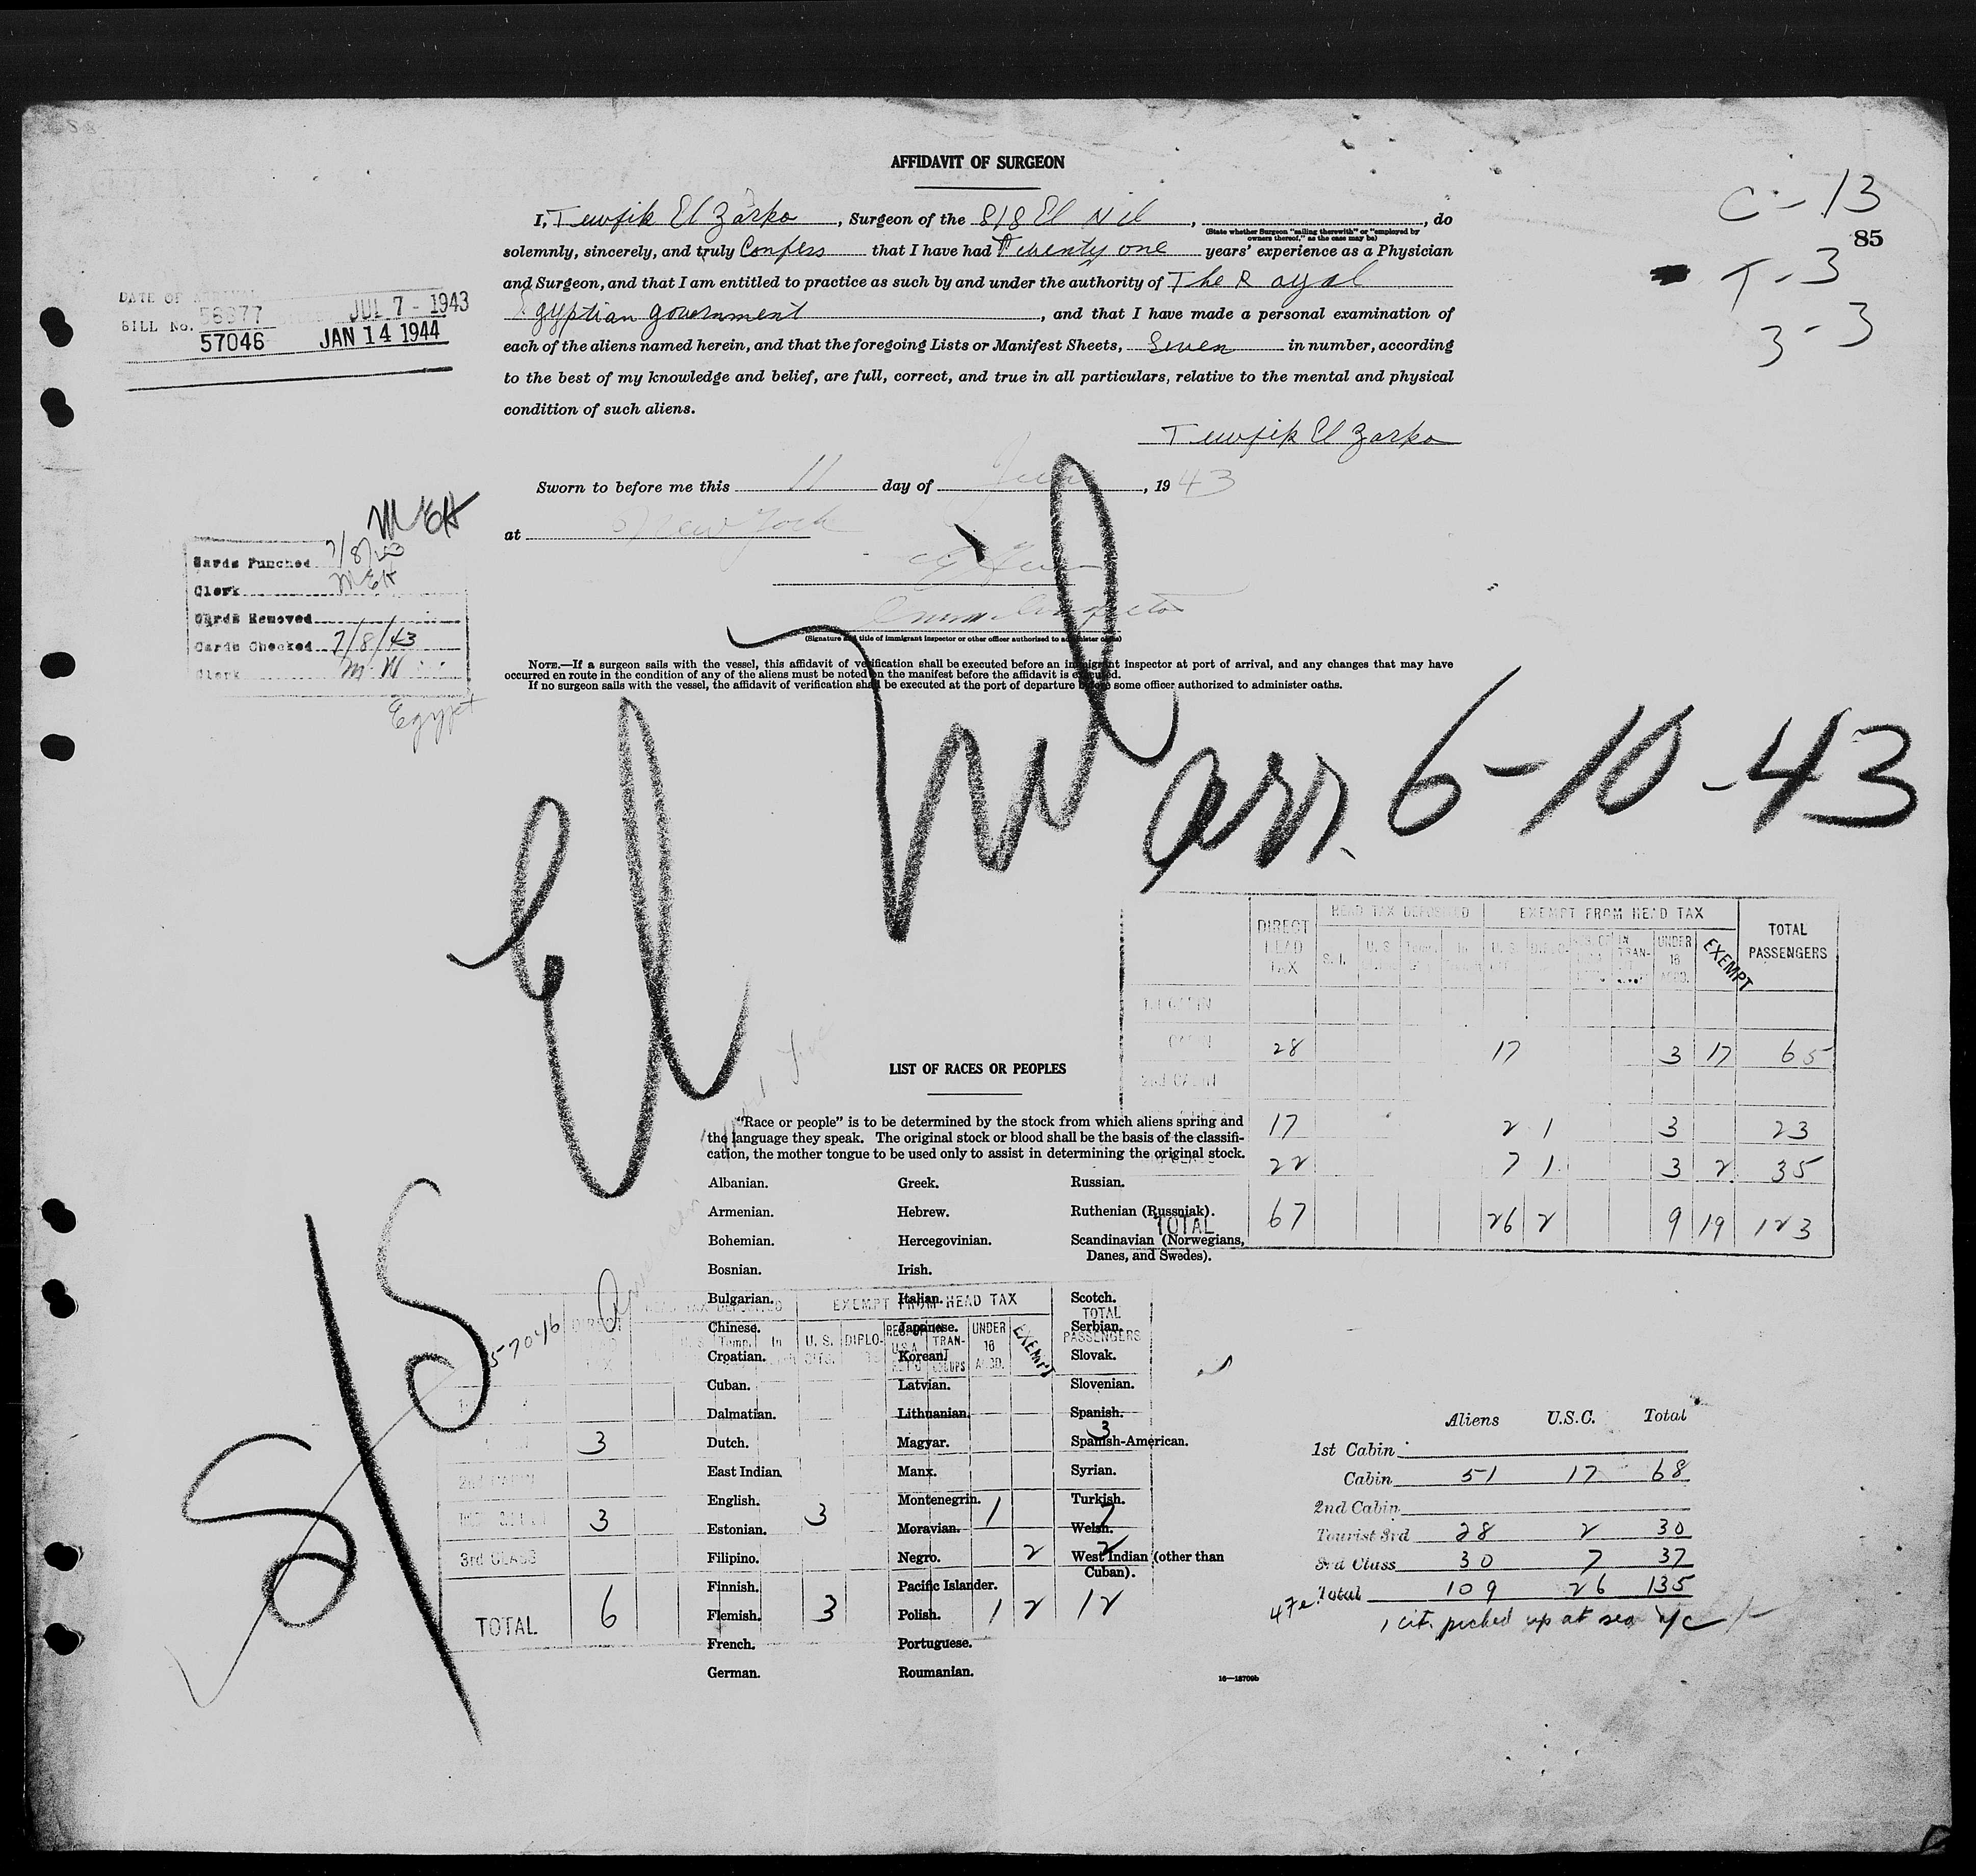 AFFIDAVIT OF SURGEON
I, Tewfik El Zarka, Surgeon of the S/S El Nil, , do
(State whether Surgeon "sailing therewith" or "employed by
owners thereof," as the case may be)
solemnly, sincerely, and truly Confess that I have had Twenty one years' experience as a Physician
and Surgeon, and that I am entitled to practice as such by and under the authority of The Royal
Egyptian government, and that I have made a personal examination of
each of the aliens named herein, and that the foregoing Lists or Manifest Sheets, Seven in number, according
to the best of my knowledge and belief, are full, correct, and true in all particulars, relative to the mental and physical
condition of such aliens.
Tewfik El Zarka
Sworn to before me this 11 day of June, 1943
at New York
(Signature and title of immigrant inspector or other officer authorized to administer oaths)
NOTE.—If a surgeon sails with the vessel, this affidavit of verification shall be executed before an immigrant inspector at port of arrival, and any changes that may have
occurred en route in the condition of any of the aliens must be noted on the manifest before the affidavit is executed.
If no surgeon sails with the vessel, the affidavit of verification shall be executed at the port of departure before some officer authorized to administer oaths.
C-13
85
T-3
3-3
DATE OF
BILL No. 56977 JUL 7 - 1943
57046 JAN 14 1944
MEH
Cards Punched 7/8/43
Clerk MEH
Cards Removed
Cards Checked 7/8/43
Clerk M.W
Egypt
S/S El Nil
arr. 6-10-43
DIRECT HEAD TAX
HEAD TAX DEPOSITED
EXEMPT FROM HEAD TAX
TOTAL PASSENGERS
U. S. DIPLO. IN TRAN- UNDER 16 EXEMPT
CABIN 28 17 3 17 65
2nd CABIN
17 2 1 3 23
22 7 1 3 2 35
TOTAL 67 26 2 9 19 123
LIST OF RACES OR PEOPLES
"Race or people" is to be determined by the stock from which aliens spring and
the language they speak. The original stock or blood shall be the basis of the classifi-
cation, the mother tongue to be used only to assist in determining the original stock.
Albanian.
Armenian.
Bohemian.
Bosnian.
Bulgarian.
Chinese.
Croatian.
Cuban.
Dalmatian.
Dutch.
East Indian.
English.
Estonian.
Filipino.
Finnish.
Flemish.
French.
German.
Greek.
Hebrew.
Hercegovinian.
Irish.
Italian.
Japanese.
Korean.
Latvian.
Lithuanian.
Magyar.
Manx.
Montenegrin.
Moravian.
Negro.
Pacific Islander.
Polish.
Portuguese.
Roumanian.
Russian.
Ruthenian (Russniak).
Scandinavian (Norwegians,
Danes, and Swedes).
Scotch.
Serbian.
Slovak.
Slovenian.
Spanish.
Spanish-American.
Syrian.
Turkish.
Welsh.
West Indian (other than
Cuban).
16—18709b
57046
HEAD TAX DEPOSITED
EXEMPT FROM HEAD TAX
TOTAL PASSENGERS
U. S. DIPLO- TRAN- UNDER 16 EXEMPT
3 3
3 3 1 7
3rd CLASS 2 2
TOTAL 6 3 1 2 12
Aliens U.S.C. Total
1st Cabin
Cabin 51 17 68
2nd Cabin
Tourist 3rd 28 2 30
3rd Class 30 7 37
Total 109 26 135
1 cit. picked up at sea